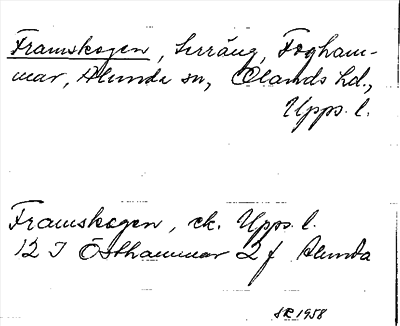 Framskogen, Surräng, Fogham-
mar, Alunda sn, Olands hd.,
Upps. l.
Framskogen, ek. Upps. l.
12 I Östhammar 2 f Alunda
SR 1958